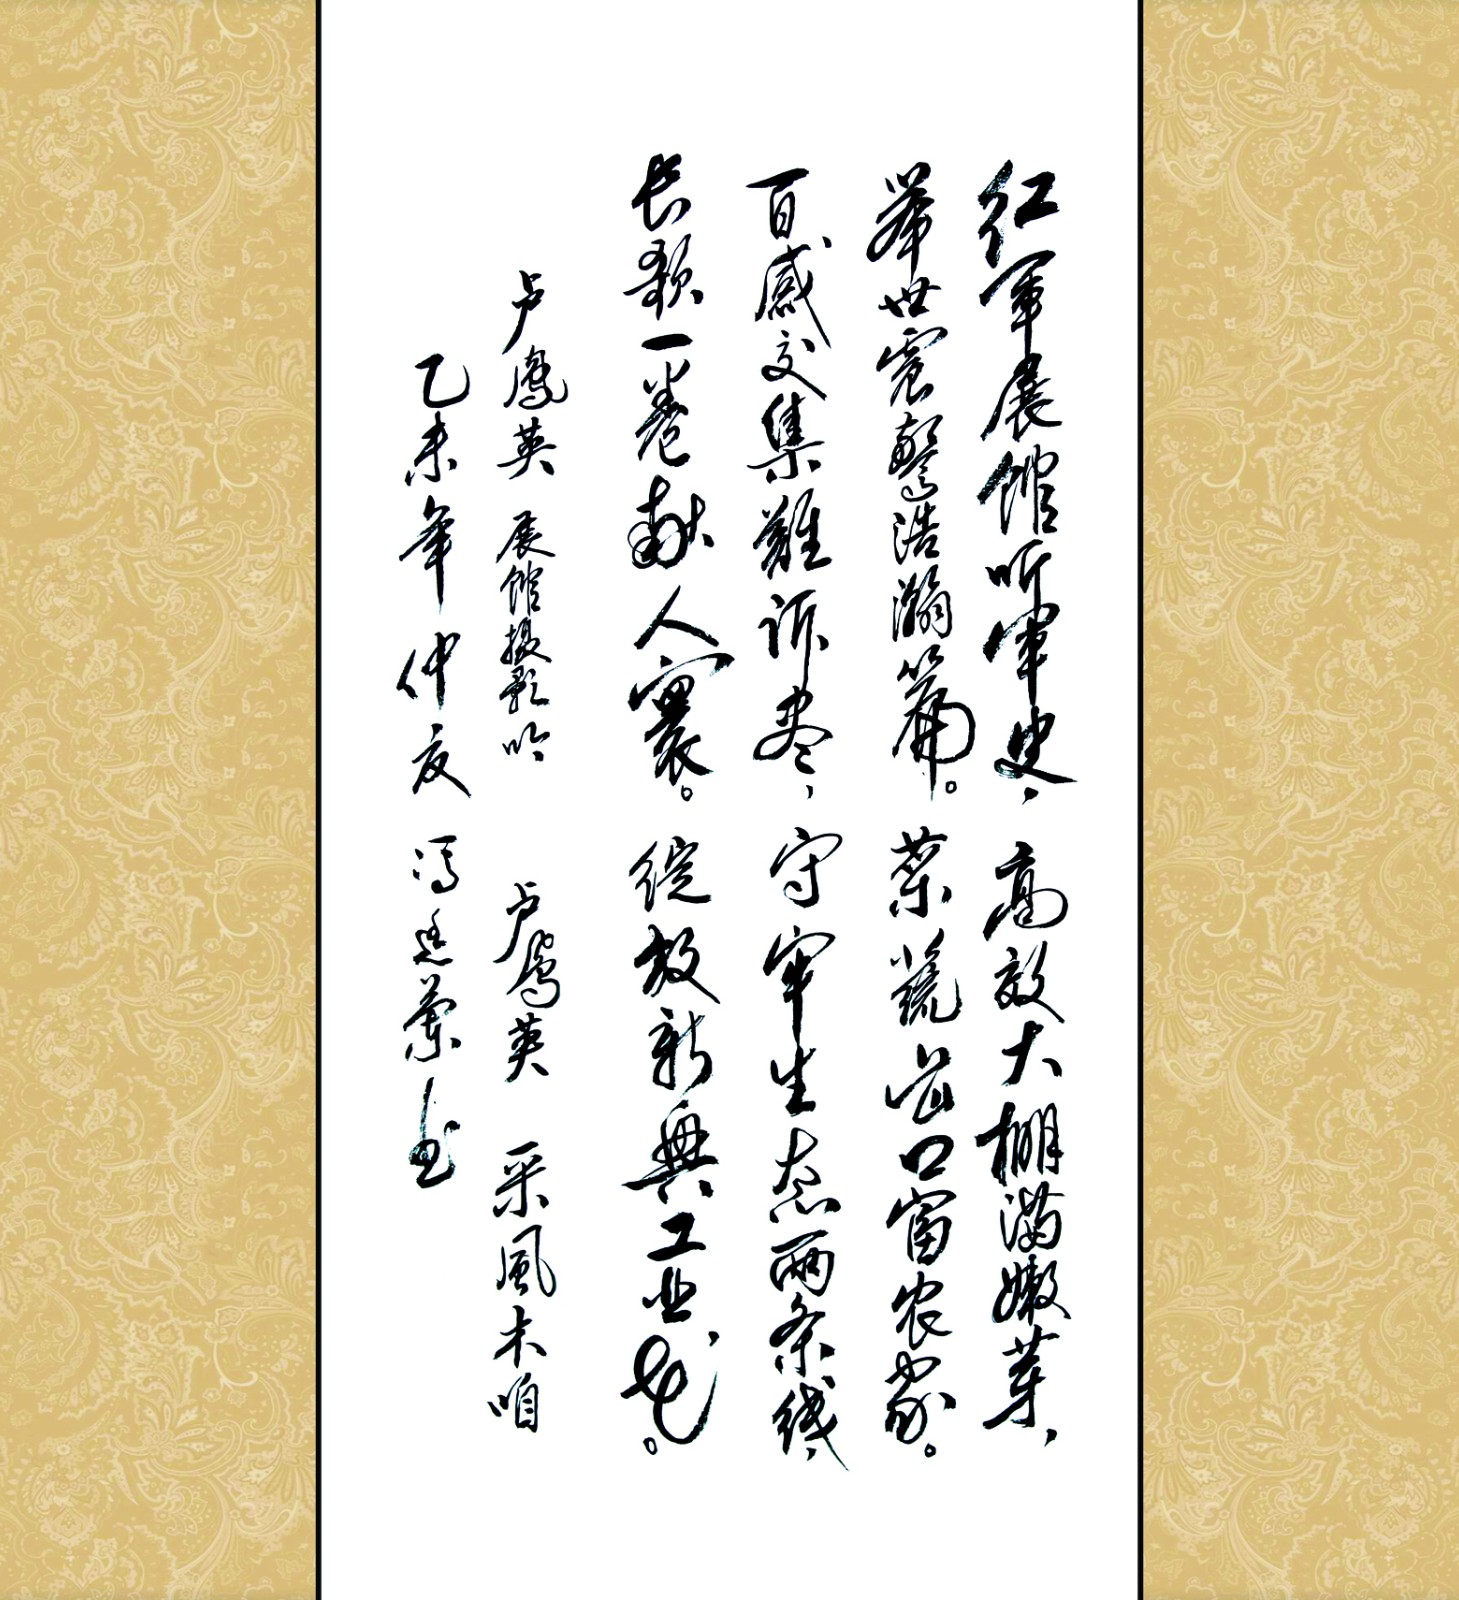 红军展馆听军史，
举世震惊浩瀚篇。
百感交集難诉尽，
长歌一卷献人寰。
卢鳳英 展馆摄影吟
高效大棚满嫩芽，
菜蔬出口富农家。
守牢生态两条线，
绽放新兴工业花。
卢鳳英 采風木咱
乙未年仲夏 冯 兰书